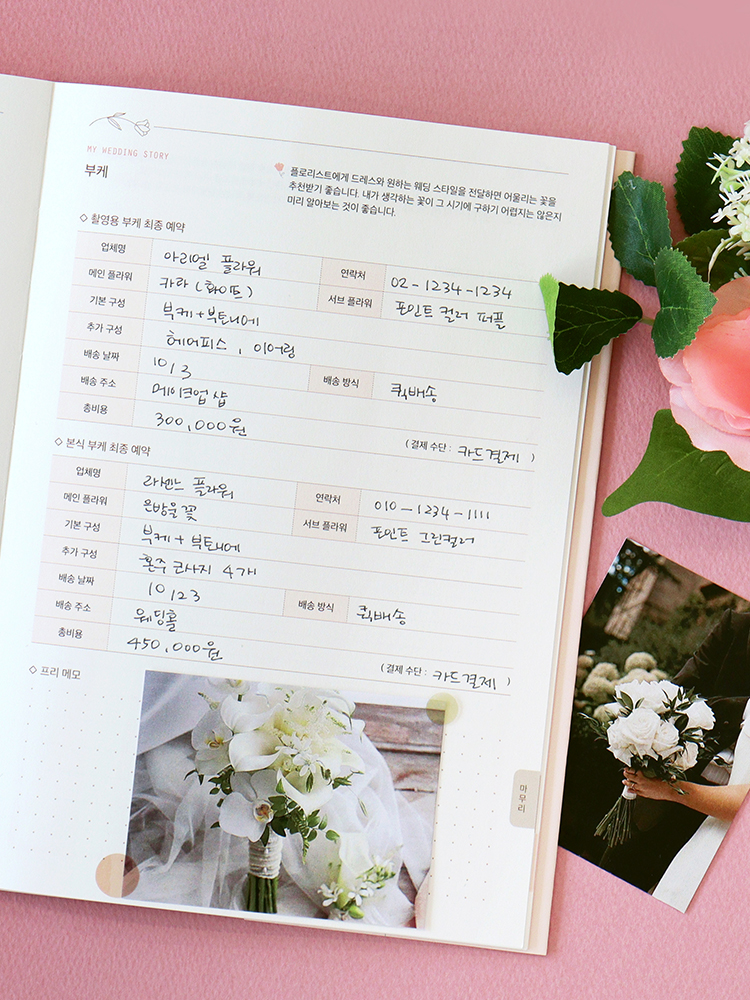 MY WEDDING STORY
부케
플로리스트에게 드레스와 원하는 웨딩 스타일을 전달하면 어울리는 꽃을
추천받기 좋습니다. 내가 생각하는 꽃이 그 시기에 구하기 어렵지는 않은지
미리 알아보는 것이 좋습니다.
◇ 촬영용 부케 최종 예약
업체명 아리엘 플라워 연락처 02-1234-1234
메인 플라워 카라 (화이트) 서브 플라워 포인트 컬러 퍼플
기본 구성 부케+부토니에
추가 구성 헤어피스, 이어링
배송 날짜 10/3 배송 방식 퀵배송
배송 주소 메이크업 샵
총비용 300,000원 (결제 수단 : 카드결제 )
◇ 본식 부케 최종 예약
업체명 라비느 플라워 연락처 010-1234-1111
메인 플라워 은방울꽃 서브 플라워 포인트 그린컬러
기본 구성 부케+부토니에
추가 구성 혼주 코사지 4개
배송 날짜 10/23 배송 방식 퀵배송
배송 주소 웨딩홀
총비용 450,000원 (결제 수단 : 카드결제 )
◇ 프리 메모
마무리